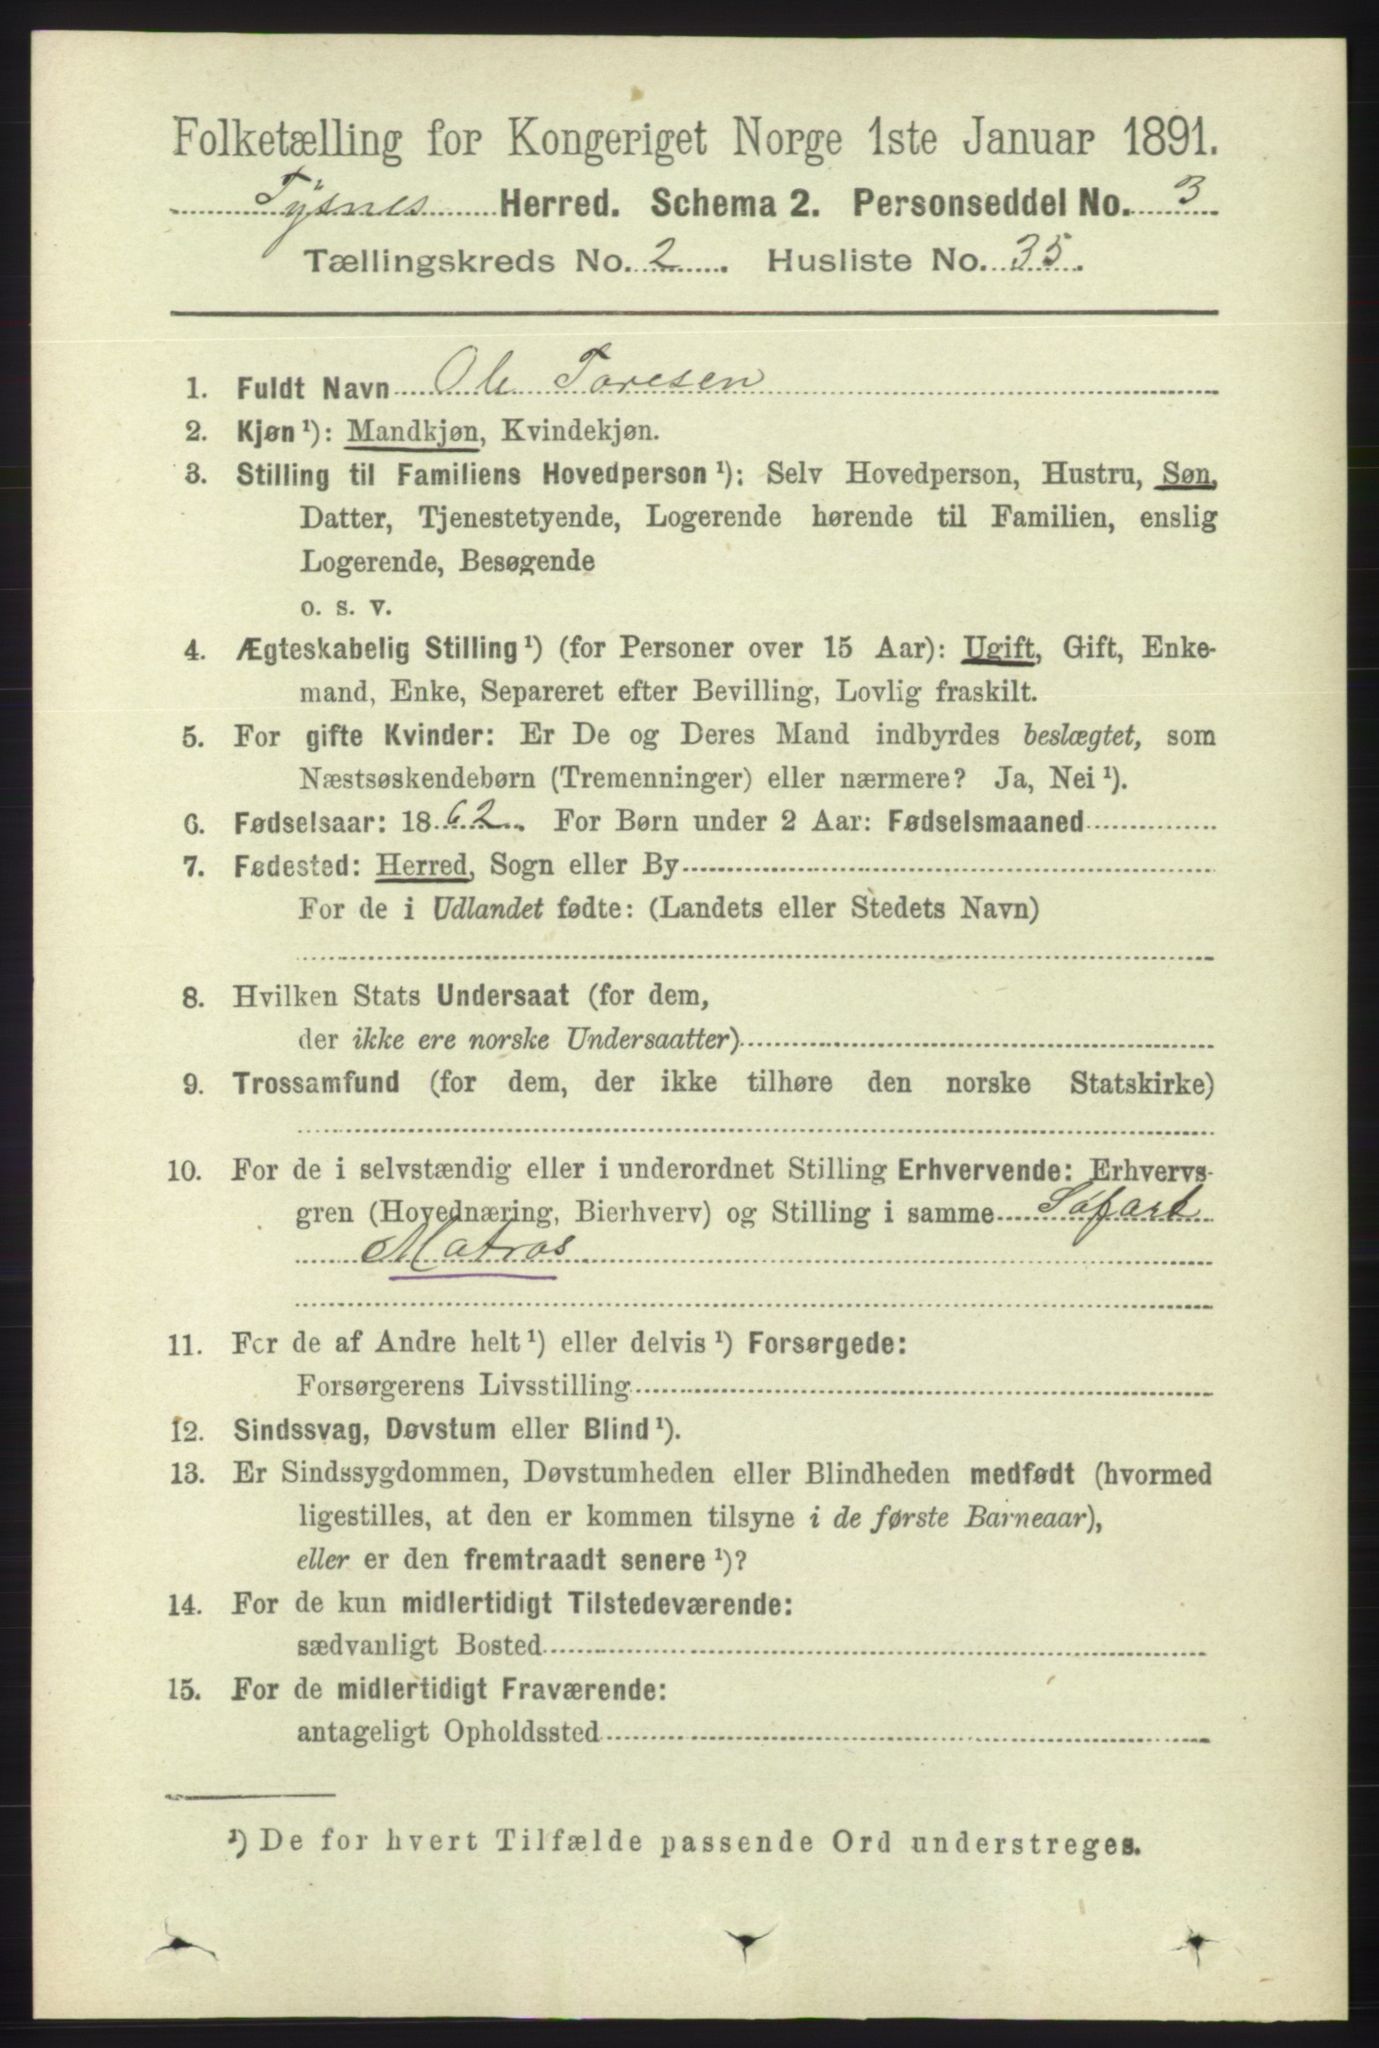 Folketælling for Kongeriget Norge 1ste Januar 1891.
Tysnes Herred. Schema 2. Personseddel No. 3
Tællingskreds No. 2. Husliste No. 35.
1. Fuldt Navn Ole Toresen
2. Kjøn ¹): Mandkjøn, Kvindekjøn.
3. Stilling til Familiens Hovedperson ¹): Selv Hovedperson, Hustru, Søn,
Datter, Tjenestetyende, Logerende hørende til Familien, enslig
Logerende, Besøgende
o. s. v.
4. Ægteskabelig Stilling ¹) (for Personer over 15 Aar): Ugift, Gift, Enke-
mand, Enke, Separeret efter Bevilling, Lovlig fraskilt.
5. For gifte Kvinder: Er De og Deres Mand indbyrdes beslægtet, som
Næstsøskendebørn (Tremenninger) eller nærmere? Ja, Nei ¹).
6. Fødselsaar: 1862. For Børn under 2 Aar: Fødselsmaaned
7. Fødested: Herred, Sogn eller By
For de i Udlandet fødte: (Landets eller Stedets Navn)
8. Hvilken Stats Undersaat (for dem,
der ikke ere norske Undersaatter)
9. Trossamfund (for dem, der ikke tilhøre den norske Statskirke)
10. For de i selvstændig eller i underordnet Stilling Erhvervende: Erhvervs-
gren (Hovednæring, Bierhverv) og Stilling i samme Søfart
Matros
11. For de af Andre helt ¹) eller delvis ¹) Forsørgede:
Forsørgerens Livsstilling
12. Sindssvag, Døvstum eller Blind ¹).
13. Er Sindssygdommen, Døvstumheden eller Blindheden medfødt (hvormed
ligestilles, at den er kommen tilsyne i de første Barneaar),
eller er den fremtraadt senere ¹)?
14. For de kun midlertidigt Tilstedeværende:
sædvanligt Bosted
15. For de midlertidigt Fraværende:
antageligt Opholdssted
¹) De for hvert Tilfælde passende Ord understreges.